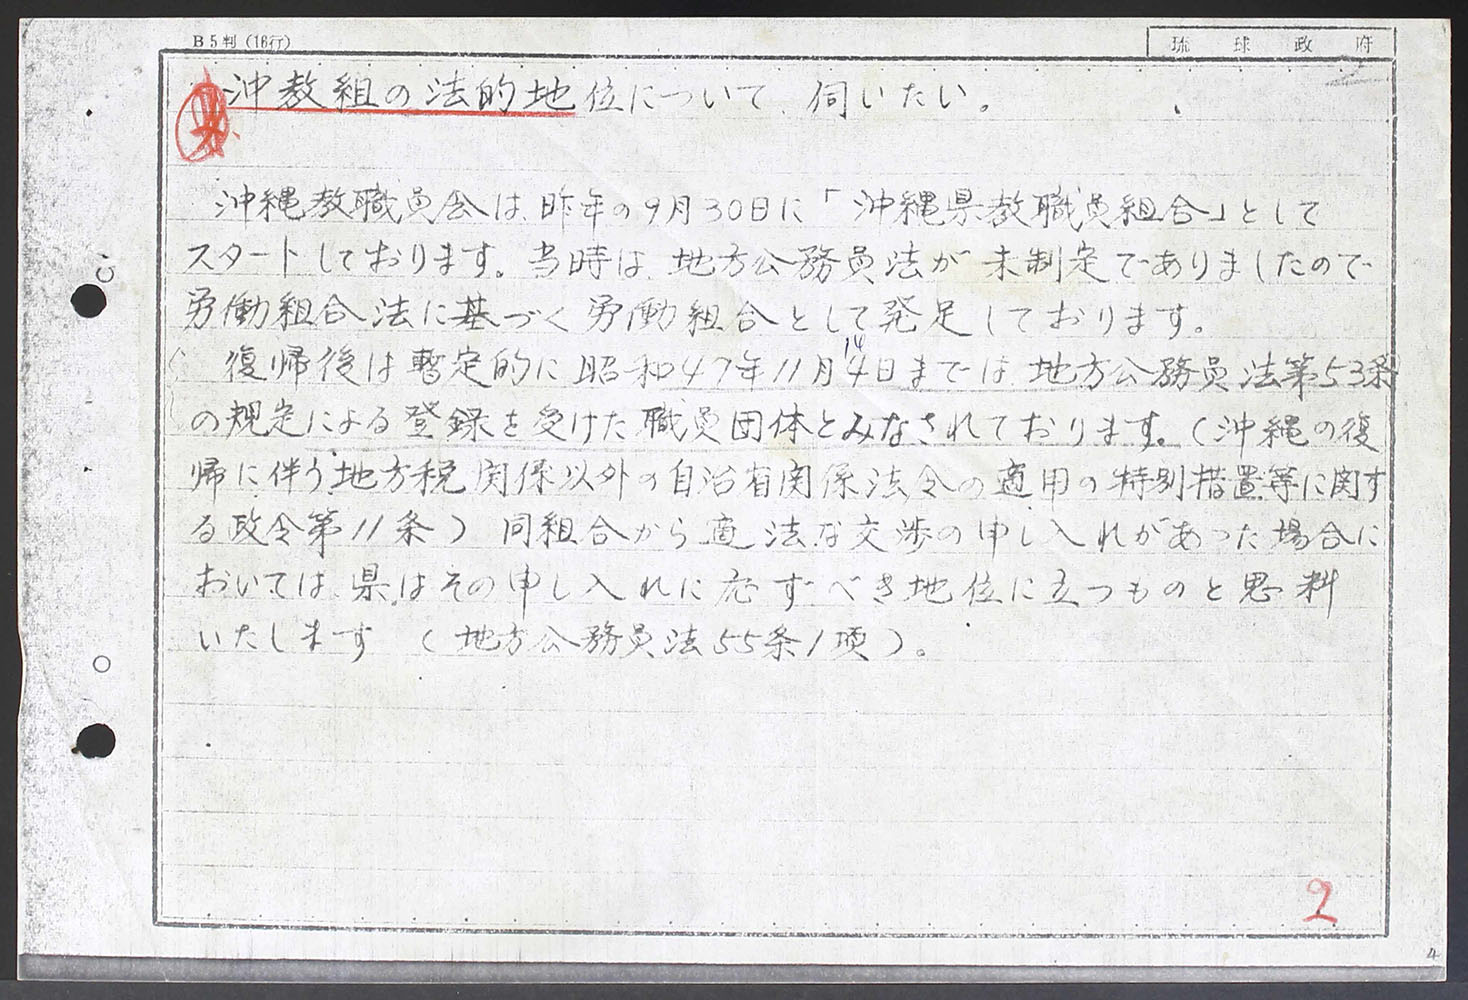 B5判(16行)
琉球政府
沖教組の法的地位について伺いたい。
沖縄教職員会は、昨年の9月30日に「沖縄県教職員組合」として
スタートしております。当時は、地方公務員法が未制定でありましたので
労働組合法に基づく労働組合として発足しております。
復帰後は暫定的に昭和47年11月14日までは、地方公務員法第53条
の規定による登録を受けた職員団体とみなされております。(沖縄の復
帰に伴う地方税関係以外の自治省関係法令の適用の特別措置等に関す
る政令第11条)同組合から適法な交渉の申し入れがあった場合に
おいては、県はその申し入れに応ずべき地位に立つものと思料
いたします(地方公務員法55条1項)。
2
4